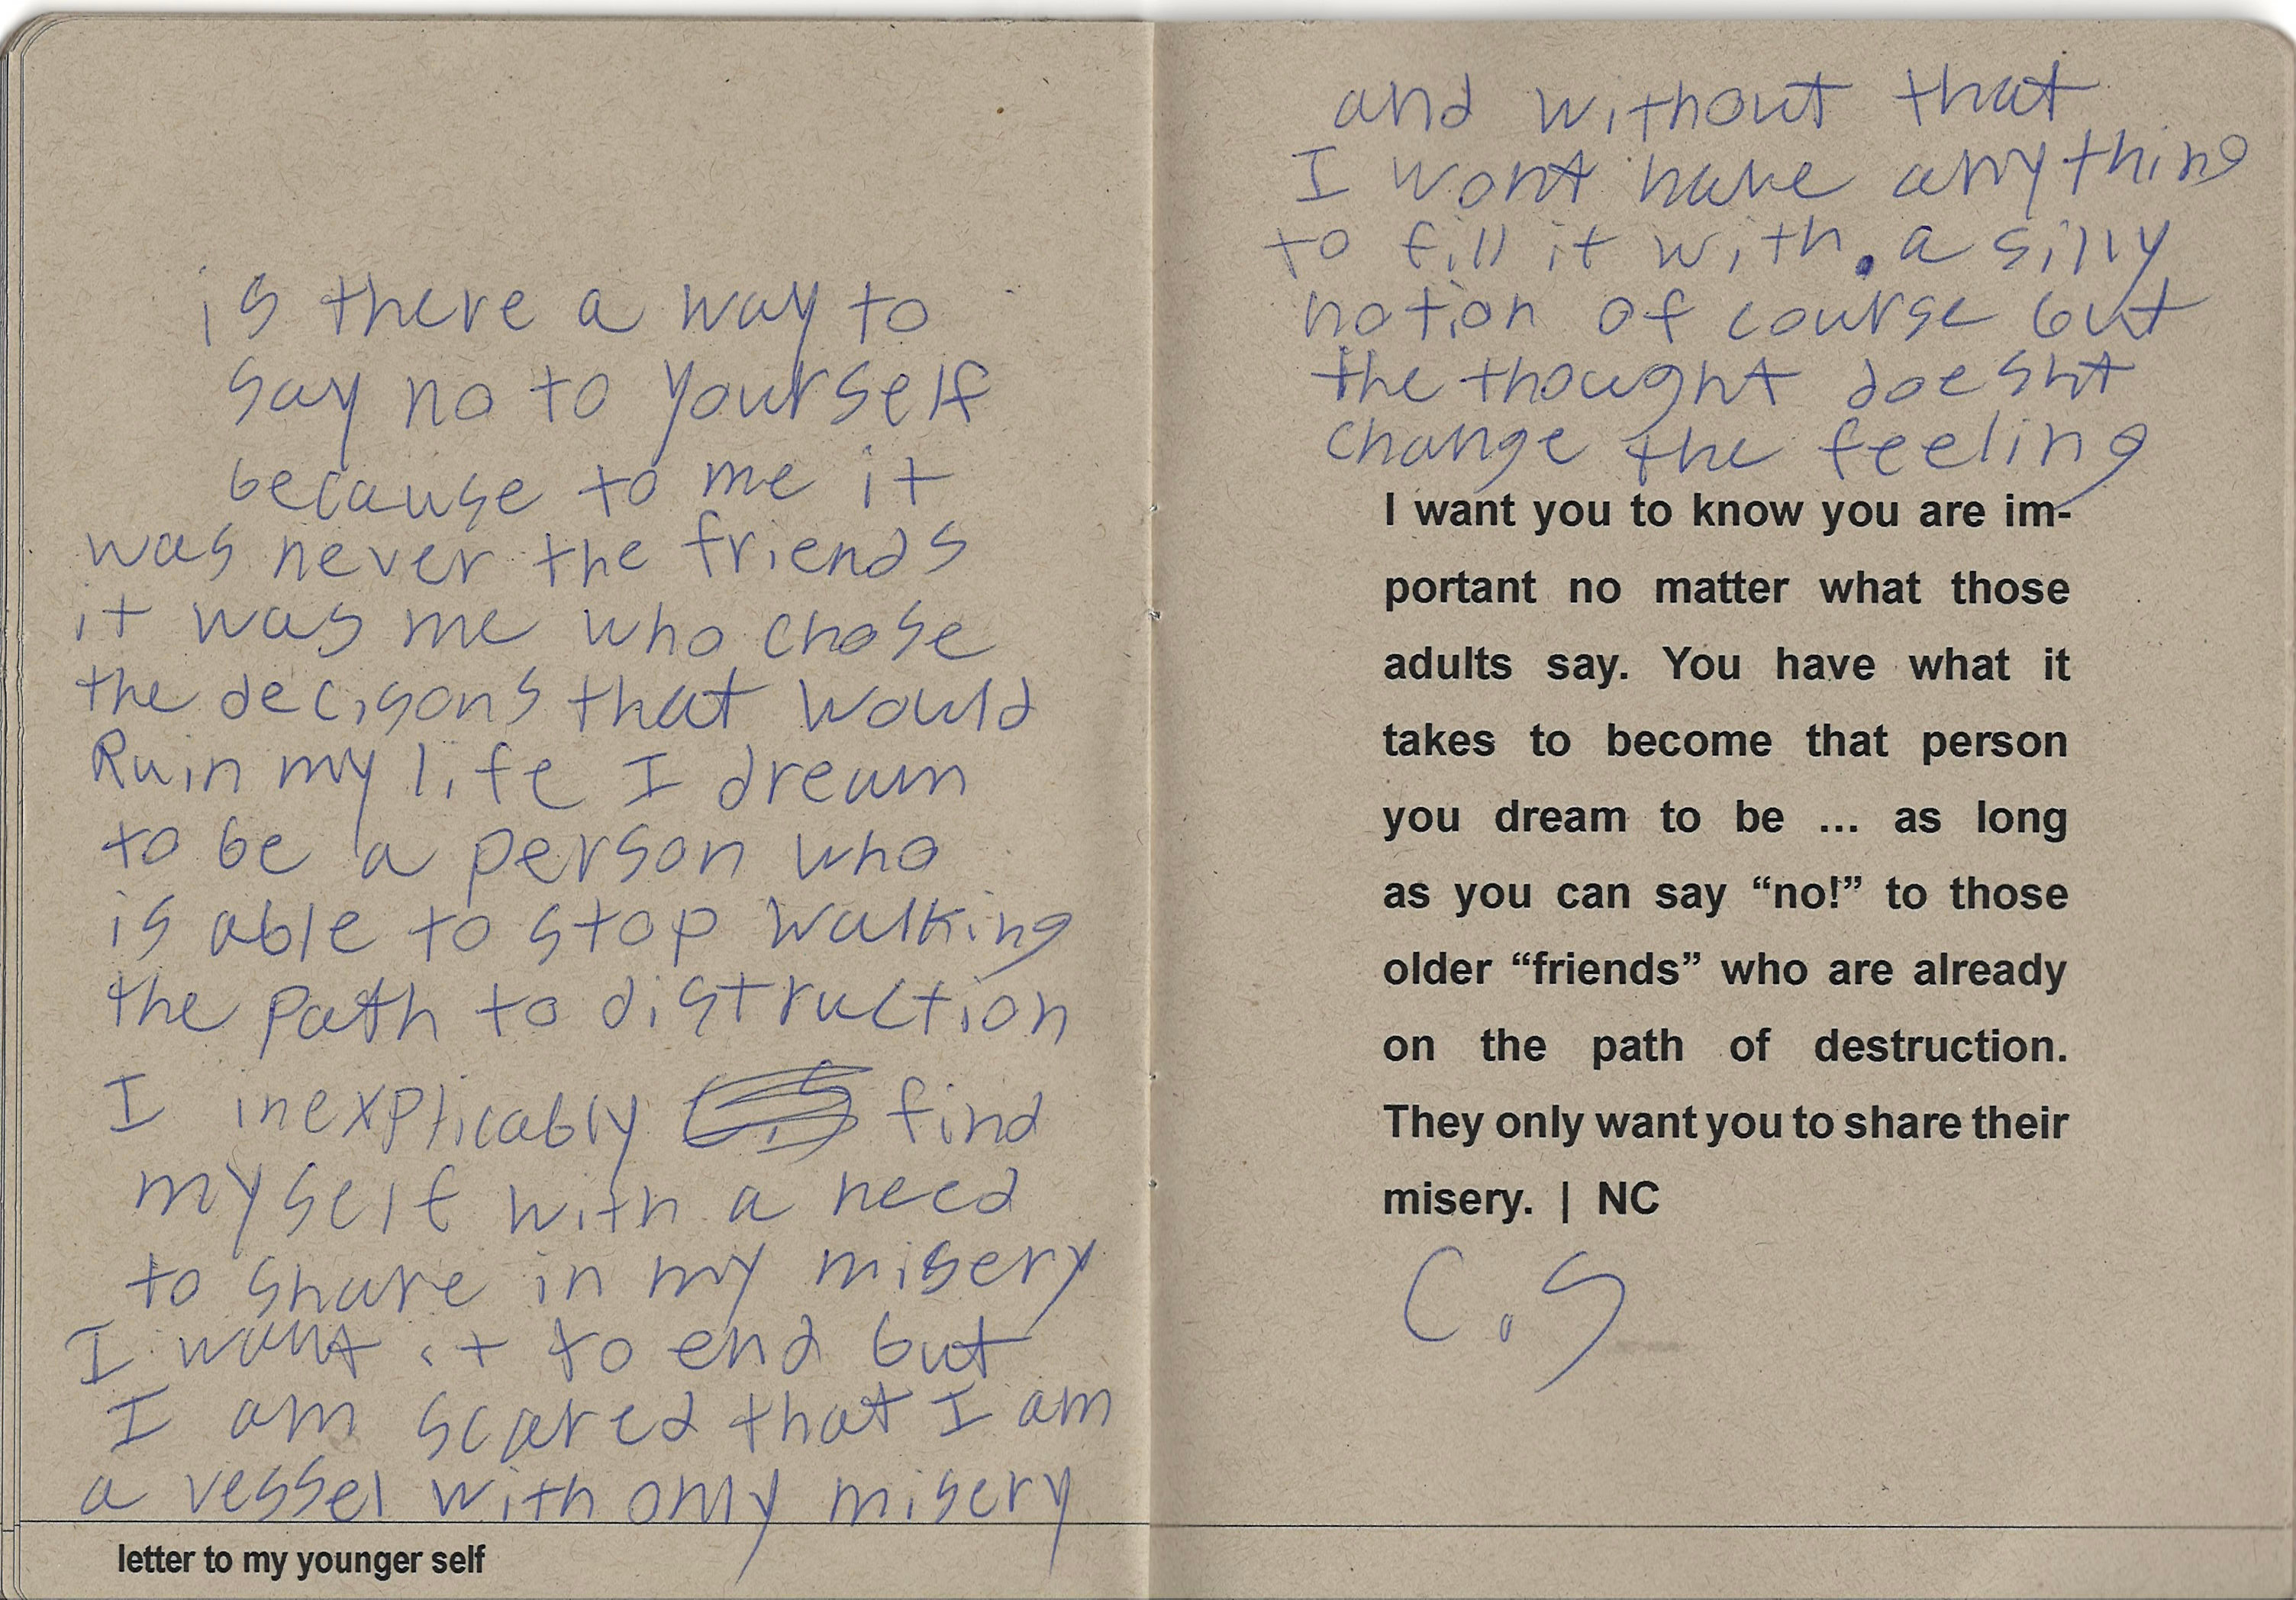 is there a way to
say no to yourself
because to me it
was never the friends
it was me who chose
the decisons that would
Ruin my life I dream
to be a person who
is able to stop walking
the path to distruction
I inexplicably find
myself with a need
to share in my misery
I want it to end but
I am scared that I am
a vessel with only misery
letter to my younger self
and without that
I wont have anything
to fill it with. a silly
notion of course but
the thought doesnt
change the feeling
I want you to know you are im-
portant no matter what those
adults say. You have what it
takes to become that person
you dream to be ... as long
as you can say “no!” to those
older “friends” who are already
on the path of destruction.
They only want you to share their
misery. | NC
C.S